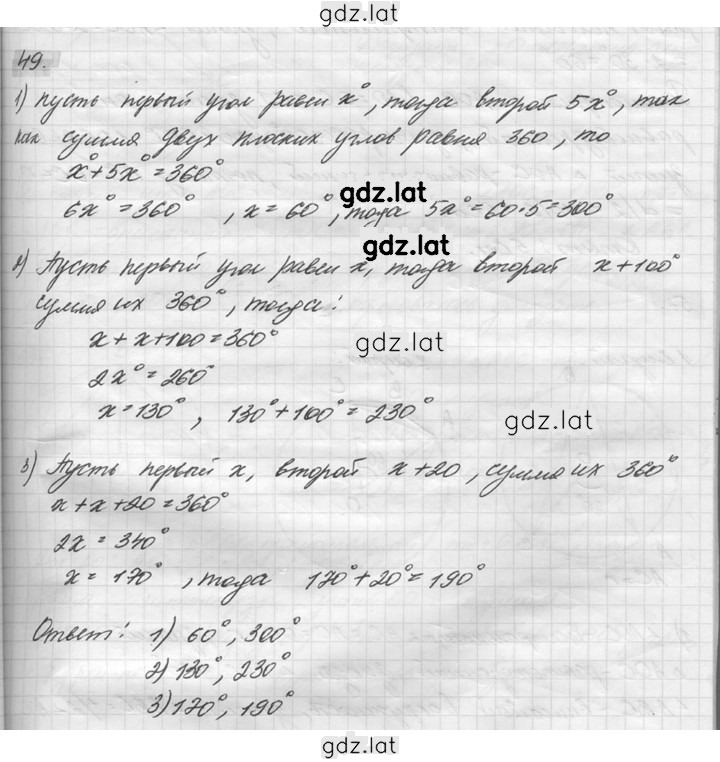 gdz.lat
49.
1) пусть первый угол равен x°, тогда второй 5x°, так
как сумма двух плоских углов равна 360, то
x°+5x°=360°
gdz.lat
6x°=360°, x=60°, тогда 5x°=60·5=300°
gdz.lat
2) Пусть первый угол равен x, тогда второй x+100°
сумма их 360°, тогда:
x+x+100=360°
gdz.lat
2x°=260°
x=130°, 130°+100°=230°
gdz.lat
3) Пусть первый x, второй x+20, сумма их 360°
x+x+20=360°
2x=340°
x=170°, тогда 170°+20°=190°
Ответ: 1) 60°, 300°
gdz.lat
2) 130°, 230°
3) 170°, 190°
gdz.lat